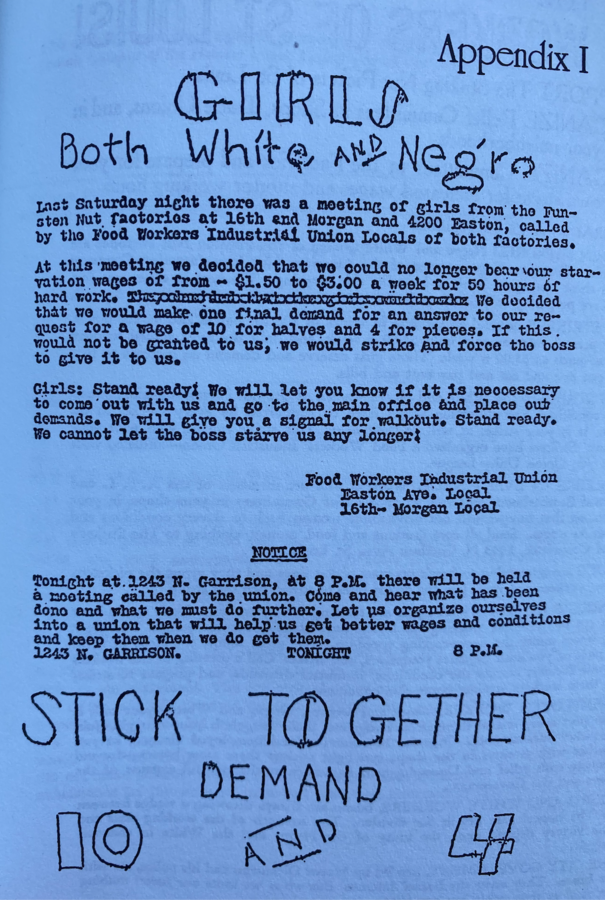 Appendix I
GIRLS
Both White AND Negro
Last Saturday night there was a meeting of girls from the Fun-
sten Nut factories at 16th and Morgan and 4200 Easton, called
by the Food Workers Industrial Union Locals of both factories.
At this meeting we decided that we could no longer bear our star-
vation wages of from - $1.50 to $3.00 a week for 50 hours of
hard work. We decided
that we would make one final demand for an answer to our re-
quest for a wage of 10 for halves and 4 for pieces. If this
would not be granted to us, we would strike and force the boss
to give it to us.
Girls: Stand ready! We will let you know if it is neocessary
to come out with us and go to the main office and place out
demands. We will give you a signal for walkout. Stand ready.
We cannot let the boss starve us any longer!
Food Workers Industrial Union
Easton Ave. Local
16th- Morgan Local
NOTICE
Tonight at 1243 N. Garrison, at 8 P.M. there will be held
a meeting called by the union. Come and hear what has been
done and what we must do further. Let us organize ourselves
into a union that will help us get better wages and conditions
and keep them when we do get them.
1243 N. GARRISON. TONIGHT 8 P.M.
STICK TOGETHER
DEMAND
10 AND 4